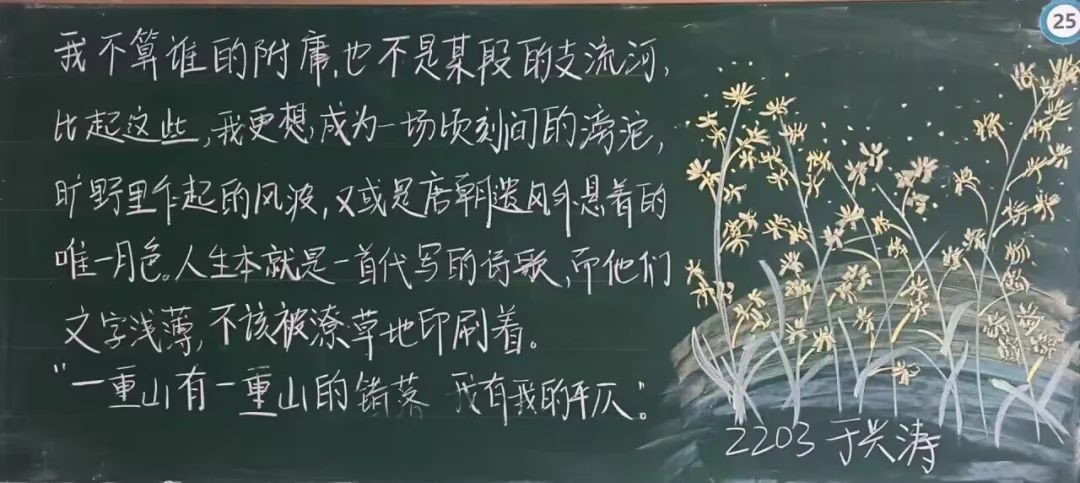 我不算谁的附庸,也不是某段的支流河,
比起这些,我更想成为一场顷刻间的滂沱,
旷野里乍起的风波,又或是唐朝遗风外悬着的
唯一月色。人生本就是一首代写的诗歌,而他们
文字浅薄,不该被潦草地印刷着。
"一重山有一重山的错落 我有我的平仄"。
2203 于兴涛
25